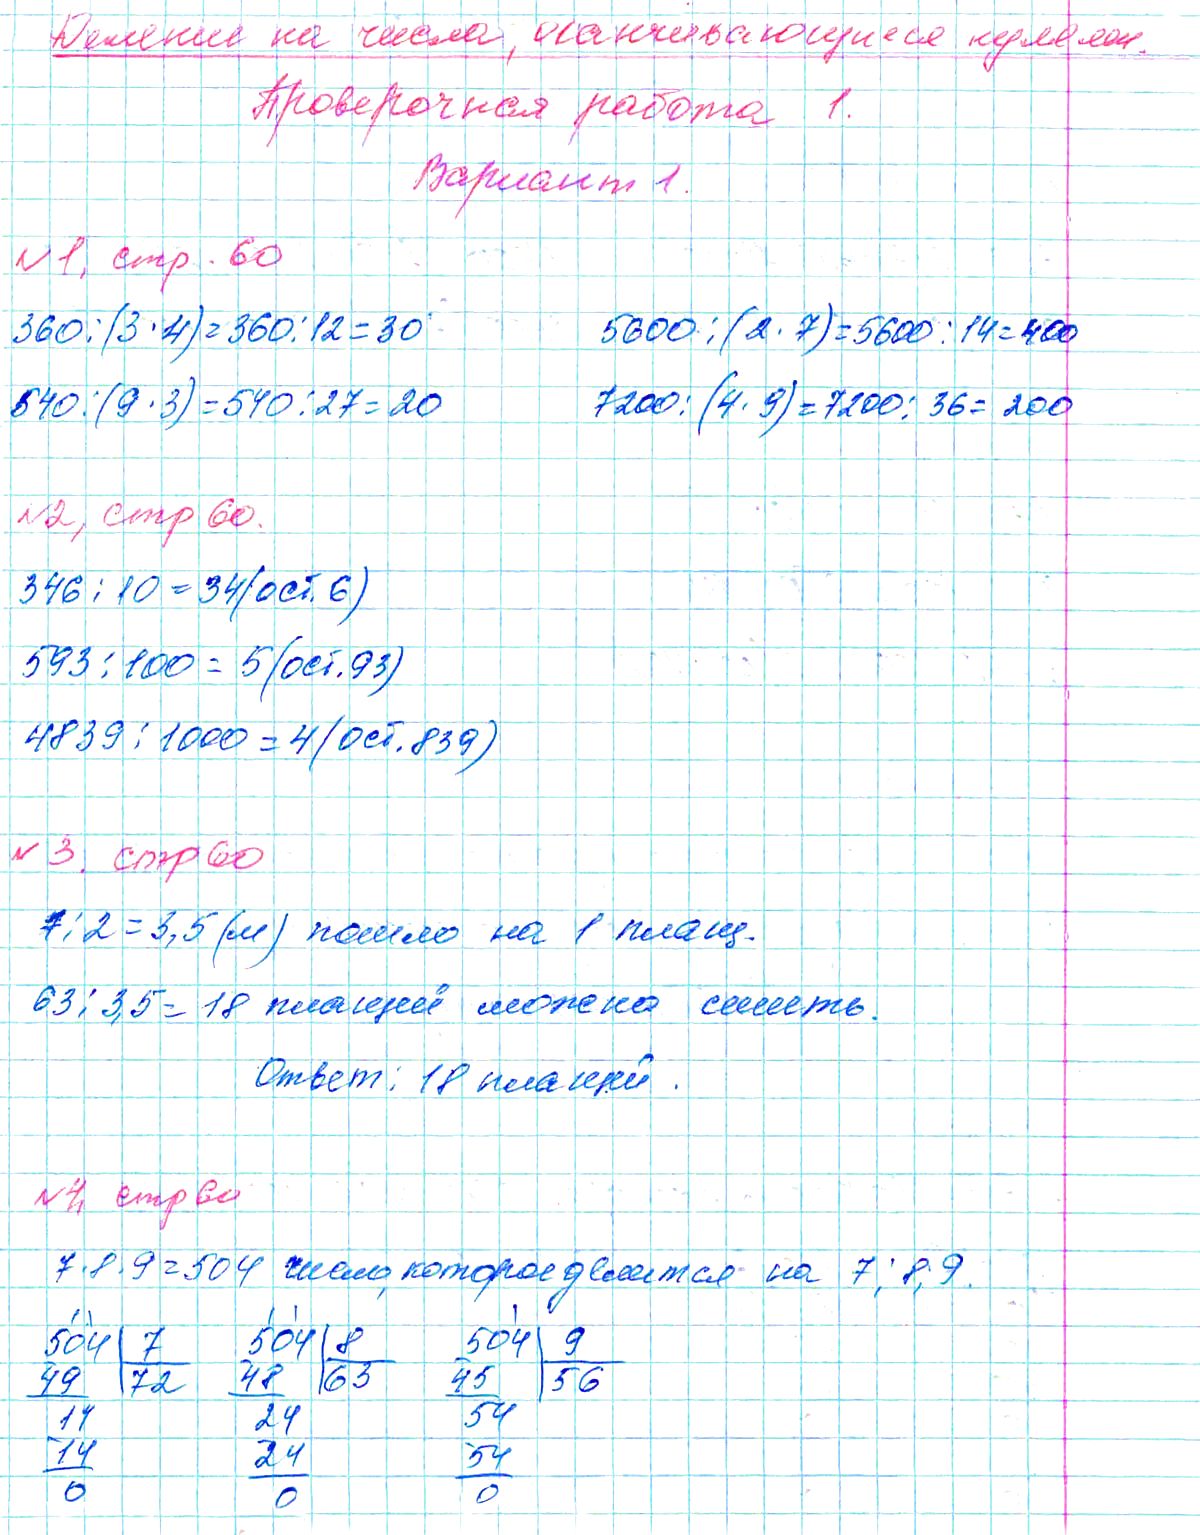 Деление на числа, оканчивающиеся нулями.
Проверочная работа 1.
Вариант 1.
№1, стр. 60
360:(3·4)=360:12=30 5600:(2·7)=5600:14=400
540:(9·3)=540:27=20 7200:(4·9)=7200:36=200
№2, стр 60.
346:10=34(ост.6)
593:100=5(ост.93)
4839:1000=4(ост.839)
№3. стр 60
7:2=3,5(м) пошло на 1 плащ.
63:3,5=18 плащей можно сшить.
Ответ: 18 плащей.
№4, стр 60
7·8·9=504 число, которое делится на 7; 8; 9.
504 7 504 8 504 9
49 72 48 63 45 56
14 24 54
14 24 54
0 0 0